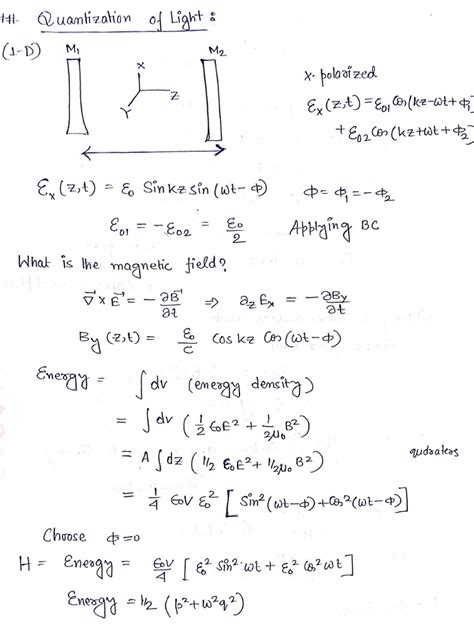 #1. Quantization of Light :
(1-D) M₁ M₂
X
Z
Y
x-polarized
Ɛₓ(z,t) = Ɛ₀₁ Cos(kz-ωt+ϕ₁)
+ Ɛ₀₂ Cos(kz+ωt+ϕ₂)
Ɛₓ(z,t) = Ɛ₀ Sin kz sin(ωt-ϕ) ϕ = ϕ₁ = -ϕ₂
Ɛ₀₁ = -Ɛ₀₂ = Ɛ₀/2 Applying BC
What is the magnetic field?
∇⃗ x E⃗ = - ∂B⃗/∂t ⇒ ∂zEx = - ∂By/∂t
By(z,t) = Ɛ₀/c cos kz Cos(ωt-ϕ)
Energy = ∫dv (energy density)
= ∫dv (1/2 ϵ₀E² + 1/2μ₀ B²)
= A∫dz (1/2 ϵ₀E² + 1/2μ₀ B²)
= 1/4 ϵ₀V Ɛ₀² [Sin²(ωt-ϕ)+Cos²(ωt-ϕ)]
Choose ϕ=0
H = Energy = ϵ₀V/4 [Ɛ₀² Sin² ωt + Ɛ₀² Cos² ωt]
Energy = 1/2 (p²+ω²q²)